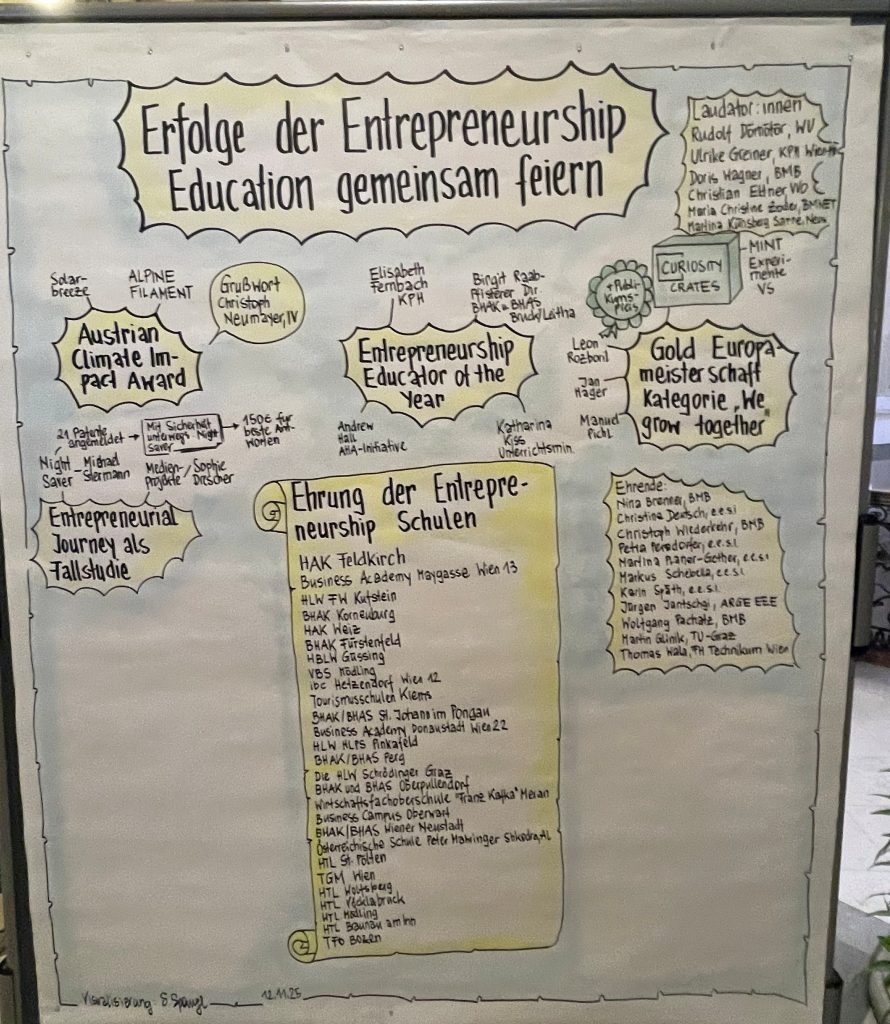 Erfolge der Entrepreneurship
Education gemeinsam feiern
Laudator:innen
Rudolf Dömötör, WU
Ulrike Greiner, KPH Wien
Doris Wagner, BMB
Christian Ettner,
Maria Christine Zoder, BMWET
Martina
Solar-
breeze
ALPINE
FILAMENT
Grußwort
Christoph
Neumayer, IV
Austrian
Climate Im-
pact Award
Elisabeth
Fernbach
KPH
Birgit Raab-
Pfisterer Dir.
BHAK & BHAS
Bruck/Leitha
Entrepreneurship
Educator of the
Year
Andrew
Hall
AHA-Initiative
Katharina
Kiss
Unterrichtsmin.
+Publi-
kums-
preis
CURIOSITY
CRATES
MINT
Experi-
mente
VS
Leon
Rozboril
Jan
Hager
Manuel
Pichl
Gold Europa-
meisterschaft
Kategorie „We
grow together"
21 Patente
angemeldet
Mit Sicherheit
unterwegs Night
Saver
150€ für
beste Ant-
worten
Night
Saver
Michael
Stermann
Medien-
Projekte
Sophie
Drescher
Entrepreneurial
Journey als
Fallstudie
Ehrung der Entrepre-
neurship Schulen
HAK Feldkirch
Business Academy Maygasse Wien 13
HLW FW Kufstein
BHAK Korneuburg
HAK Weiz
BHAK Fürstenfeld
HBLW Güssing
VBS Mödling
ibc Hetzendorf Wien 12
Tourismusschulen Krems
BHAK/BHAS St. Johann im Pongau
Business Academy Donaustadt Wien 22
HLW HLPS Pinkafeld
BHAK/BHAS Perg
Die HLW Schrödinger Graz
BHAK und BHAS Oberpullendorf
Wirtschaftsfachoberschule "Franz Kafka" Meran
Business Campus Oberwart
BHAK/BHAS Wiener Neustadt
Österreichische Schule Peter Mahringer Shkodra, AL
HTL St. Pölten
TGM Wien
HTL Wolfsberg
HTL Vöcklabruck
HTL Mödling
HTL Braunau am Inn
TFO Bozen
Ehrende:
Nina Brenner, BMB
Christina Deutsch, e.e.s.i
Christoph Wiederkehr, BMB
Petra e.e.s.i
Martina e.e.s.i
Markus Schebella, e.e.s.i
Karin Späth, e.e.s.i.
Jürgen Jantschgi, ARGE EEE
Wolfgang Pachatz, BMB
Martin Glinik, TU-Graz
Thomas Wala, FH Technikum Wien
Visualisierung: S
12.11.25